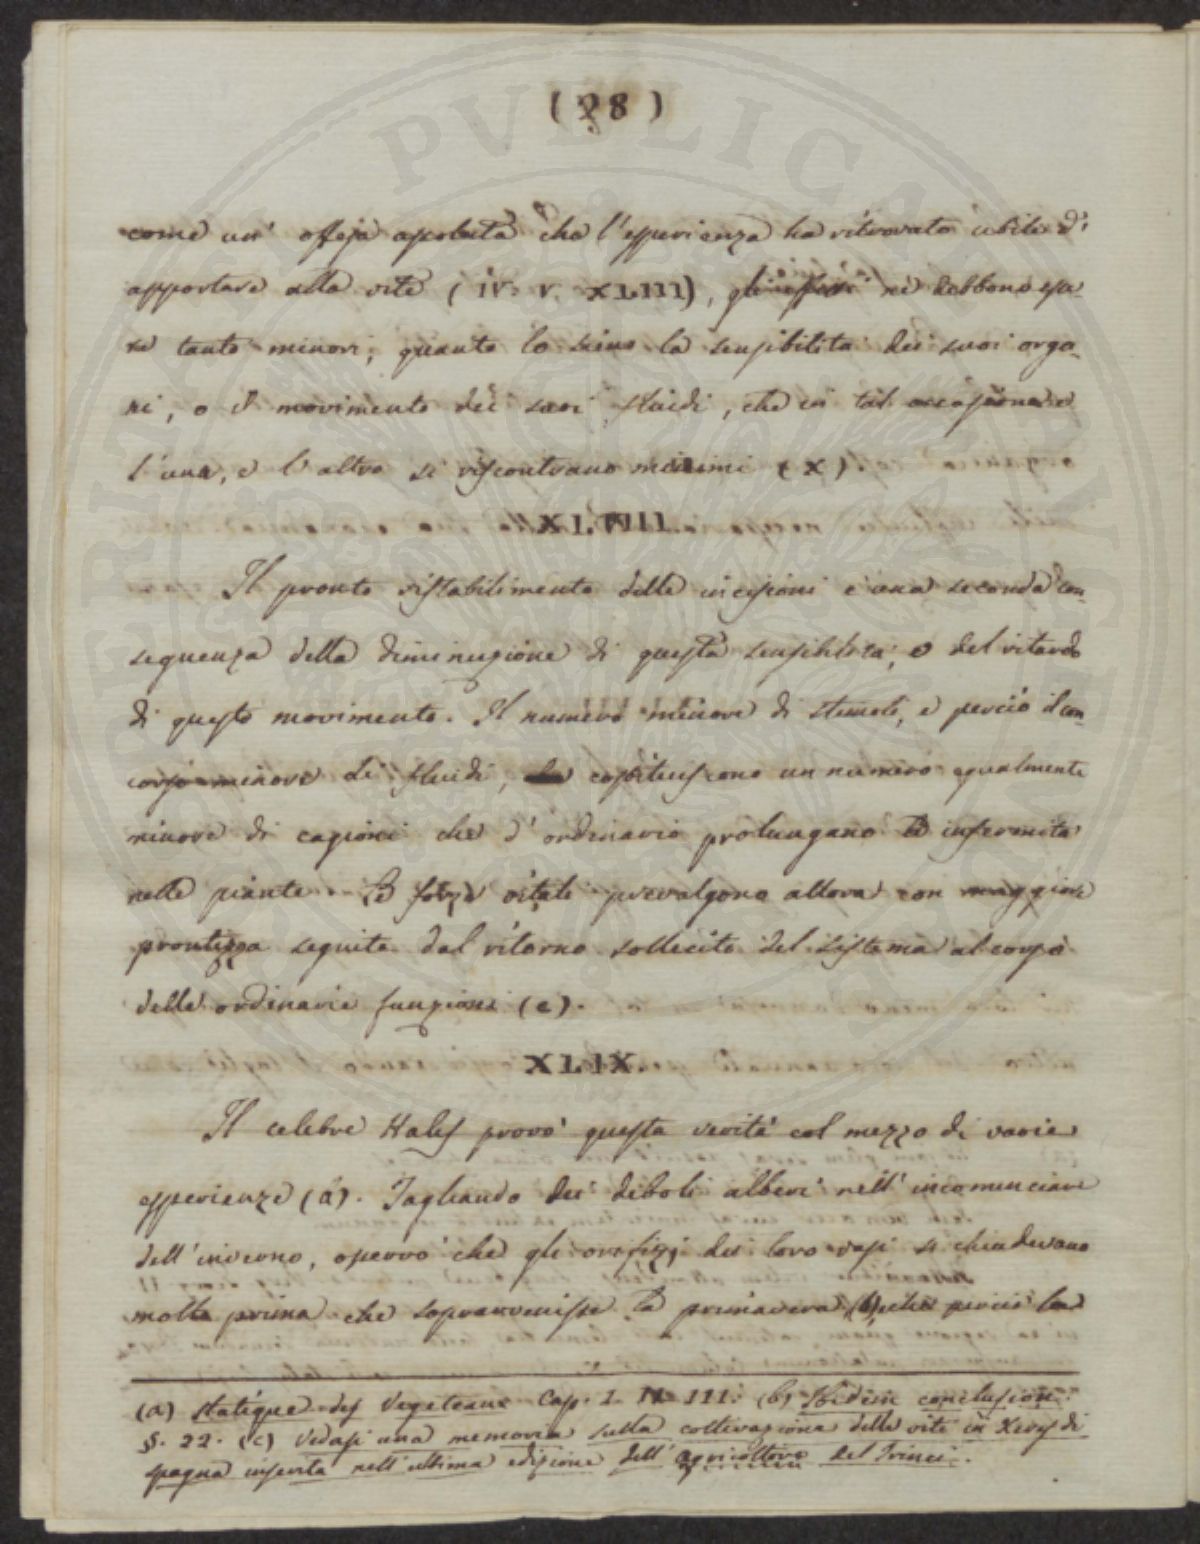 (28)
come un' offesa assoluta che l'esperienza ha ritrovato utile di
apportare alla vite (IV. V. XLIII), ne debbono esse-
re tanto minori, quanto lo sieno la sensibilità dei suoi orga-
ni, o il movimento dei suoi fluidi, che in tal occasione e
l'una, e l'altro si riscontrano minimi (X)
XLVIII.
Il pronto ristabilimento delle incisioni è una seconda con-
seguenza della diminuzione di questa sensibilità, o del ritardo
di questo movimento. Il numero minore di stimoli, e perciò il con-
corso minore di fluidi, costituiscono un numero egualmente
minore di cagioni che d'ordinario prolungano le infermità
nelle piante. Le forze vitali prevalgono allora con maggiore
prontezza seguita dal ritorno sollecito del sistema al corpo
delle ordinarie funzioni (c).
XLIX.
Il celebre Hales provò questa verità col mezzo di varie
esperienze (a). Tagliando dei deboli alberi nell'incominciare
dell'inverno, osservò che gli orifizj dei loro vasi si chiudevano
molto prima che sopravvenisse la primavera (b), che perciò la
(a) Statique des Vegeteaux Cap. I. N. III. (b) Ibidem conclusion.
§. 22. (c) Vedasi una memoria sulla coltivazione delle vite in Xeres di
Spagna inserita nell'ultima edizione dell'agricoltore del Trinci.